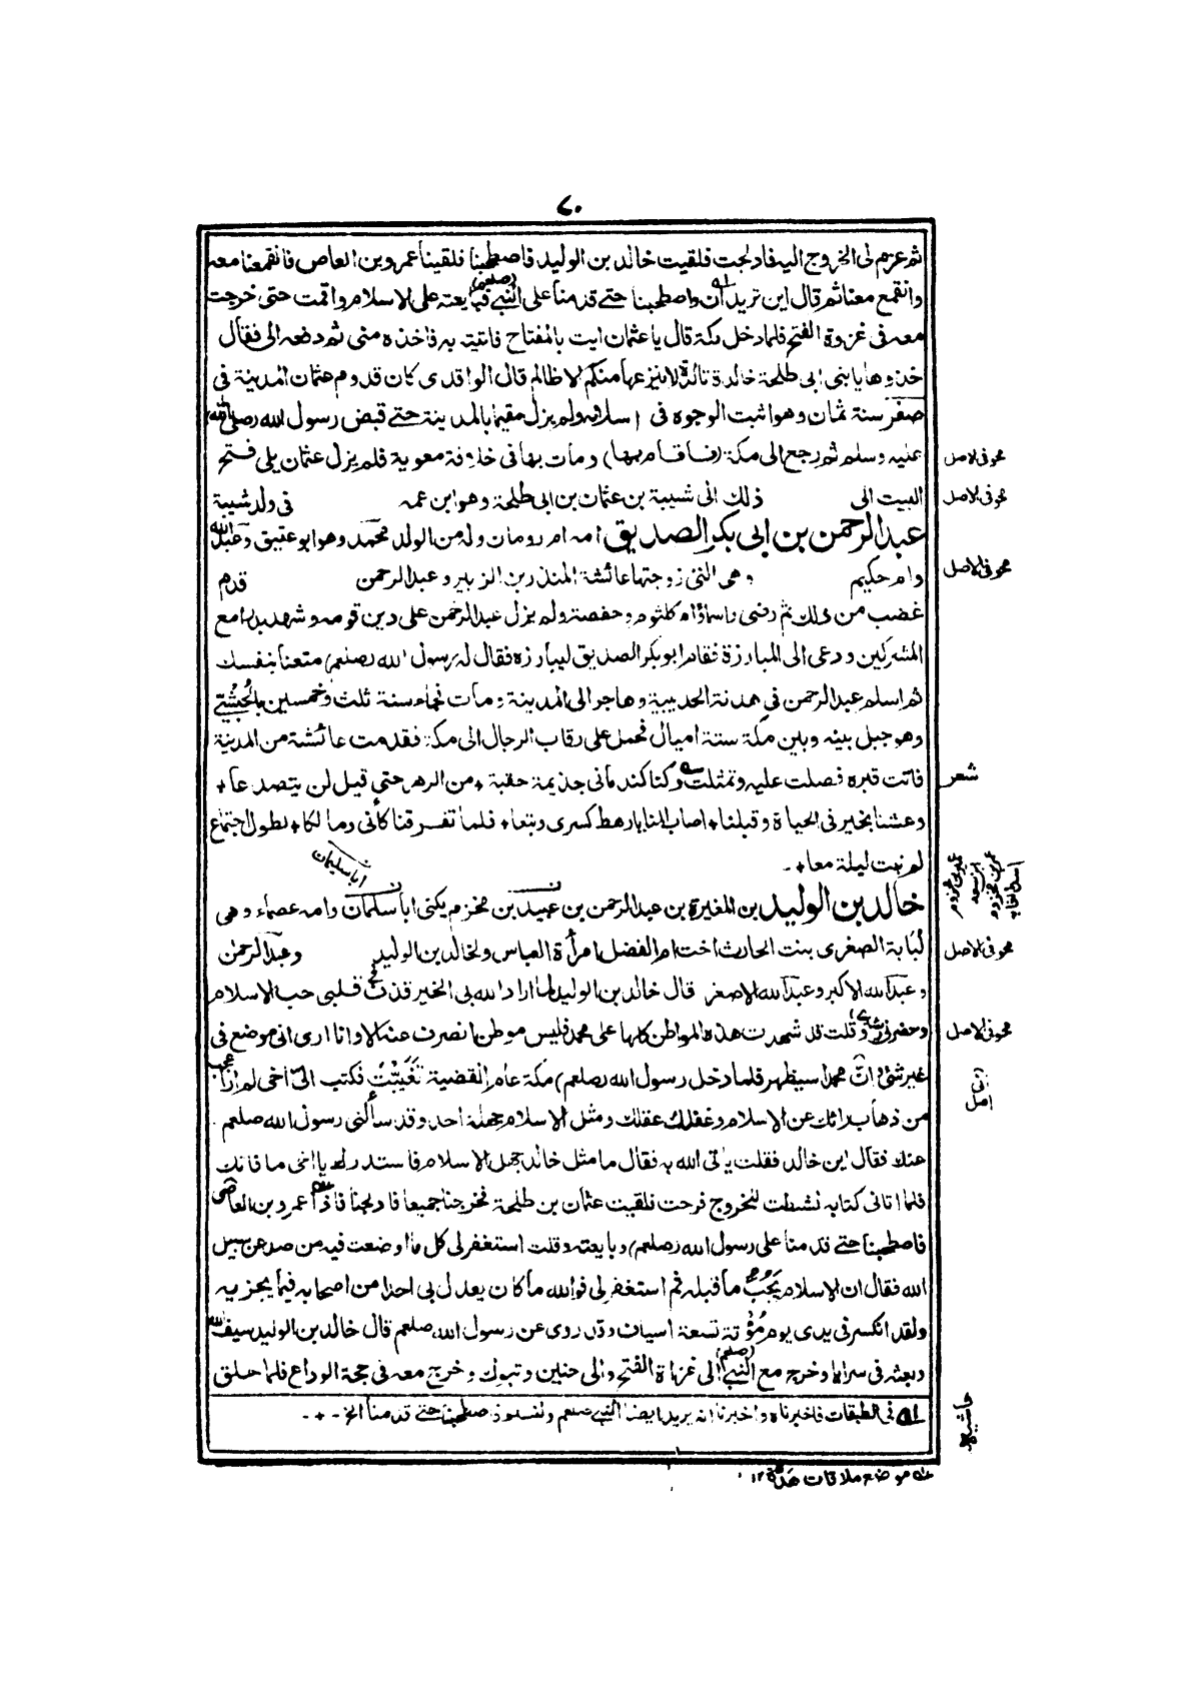 ٧٠
ثم عزم لى الخروج اليه فادلجت فلقيت خالد بن الوليد فاصطحبنا فلقينا عمرو بن العاص فانقمعنا معه
وانقمع معنا ثم قال اين تريدان واصطحبنا حتى قدمنا على النبى (صلعم) فبايعته على الاسلام واقمت حتى خرجت
معه فى غزوة الفتح فلما دخل مكة قال يا عثمان ايت بالمفتاح فاتيته به فاخذه منى ثم دفعه الى فقال
خذوها يا بنى ابى طلحة خالدة تالدة لا ينزعها منكم الا ظالم قال الواقدى كان قدوم عثمان المدينة فى
صفر سنة ثمان وهو اثبت الوجوه فى اسلامه ولم يزل مقيما بالمدينة حتى قبض رسول الله (صلى الله
عليه وسلم ثم رجع الى مكة (فاقام بها) ومات بها فى خلافة معوية فلم يزل عثمان يلى فتح
محو فى الاصل
البيت الى ذلك الى شيبة بن عثمان بن ابى طلحة وهو ابن عمه فى ولد شيبة
محو فى الاصل
عبد الرحمن بن ابى بكر الصديق امه ام رومان وله من الولد محمد وهو ابو عتيق وعبد الله
وام حكيم وهى التى زوجتها عائشة المنذر بن الزبير وعبد الرحمن قدم
محو فى الاصل
غضب من ذلك ثم رضى واسماؤ ام كلثوم وحفصة ولم يزل عبد الرحمن على دين قومه وشهد بدرا مع
المشركين ودعى الى المبارزة فقام ابو بكر الصديق ليبارزه فقال له رسول الله (صلعم) متعنا بنفسك
ثم اسلم عبد الرحمن فى هدنة الحديبية وهاجر الى المدينة ومات فجاءة سنة ثلث وخمسين بالحبشى
وهو جبل بينه وبين مكة ستة اميال فحمل على رقاب الرجال الى مكة فقدمت عائشة من المدينة
فاتت قبره فصلت عليه وتمثلت وكنا كندمانى جذيمة حقبة + من الدهر حتى قيل لن يتصدعا +
شعر
وعشنا بخير فى الحياة وقبلنا + اصاب المنايا رهط كسرى وتبعا + فلما تفرقنا كأنى ومالكا + لطول اجتماع
لم نبت ليلة معا + -
ابا سليمان
خالد بن الوليد بن المغيرة بن عبد الرحمن بن عبيد بن مخزم يكنى ابا سلمان وامه عصماء وهى
لبابة الصغرى بنت الحارث اخت ام الفضل امرأة العباس ولخالد بن الوليد وعبد الرحمن
محو فى الاصل
وعبد الله الاكبر وعبد الله الاصغر قال خالد بن الوليد لما اراد الله بى الخير قذف فى قلبى حب الاسلام
وحضرنى رشدى وقلت قد شهدت هذه المواطن كلها على محمد فليس موطن انصرف عنه الا وانا ارى انى موضع فى
محو فى الاصل
غير شئ وان محمدا سيظهر فلما دخل رسول الله (صلعم) مكة عام القضية تغيبت فكتب الى اخى لم ار اعجب
من ذهاب رائك عن الاسلام وعقلك عقلك ومثل الاسلام جهله احد وقد سألنى رسول الله صلعم
عنك فقال اين خالد فقلت يأتى الله به فقال ما مثل خالد جهل الاسلام فاستدرك يا اخى ما فاتك
فلما اتانى كتابه نشطت للخروج فرحت فلقيت عثمان بن طلحة فخرجنا جميعا فادلجنا فاذا عمرو بن العاص
فاصطحبنا حتى قدمنا على رسول الله (صلعم) وبايعته وقلت استغفر لى كل ما اوضعت فيه من صد عن سبيل
الله فقال ان الاسلام يجب ما قبله ثم استغفر لى فوالله ما كان يعدل بى احدا من اصحابه فيما يجزيه
ولقد انكسر فى يدى يوم مؤتة تسعة اسياف ودى روى عن رسول الله صلعم قال خالد بن الوليد سيف الله
وبعثه فى سرايا وخرج مع النبى (صلعم) الى غزاة الفتح والى حنين وتبوك وخرج معه فى حجة الوداع فلما حلق
حاشيه
له فى الطبقات فاخبرناه واخبرنا انه يريد ايضا النبى صلعم حتى قدمنا الخ - + -
موضع ملاقات ١٢